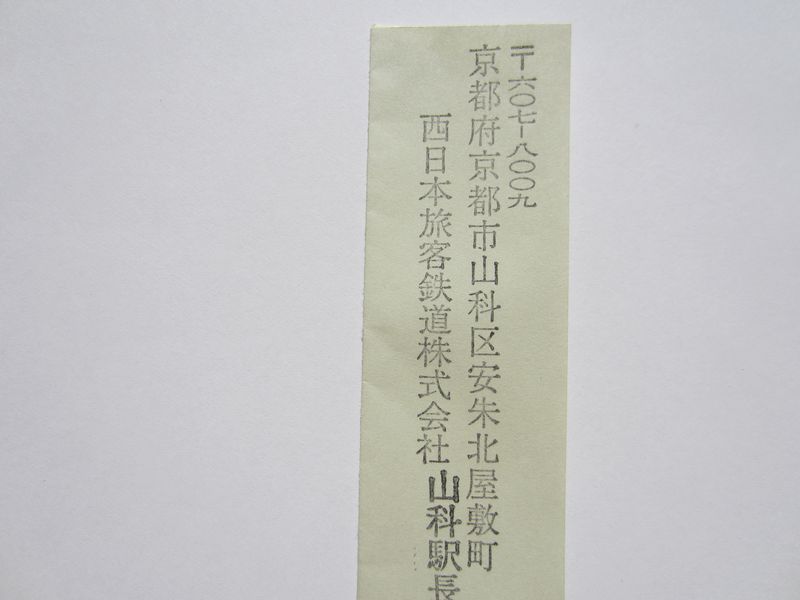 〒六〇七-八〇〇九
京都府京都市山科区安朱北屋敷町
西日本旅客鉄道株式会社 山科駅長